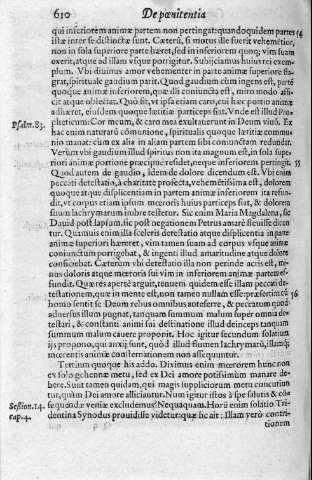 630 De pœnitentia
qui inferiorem animæ partem non pertingat: quandoquidem partes 54
istæ inter se distinctæ sunt. Cæterũ, si motus ille fuerit vehemẽtior,
non in sola superiore parte hæret, sed in inferiorem quoq; vim suam
exerit, atque ad illam vsque porrigitur. Subijciamus huius rei exem-
plum. Vbi diuinus amor vehementer in parte animæ superiore fla-
grat, spirituale gaudium parit. Quod gaudium cùm ingens est, partẽ
quoque animæ inferiorem, quæ illi coniuncta est, miro modo affi-
cit atque oblectat. Quò fit, vt ipsa etiam caro, cui hæc portio animæ
adhæret, eiusdem quoque lætitiæ particeps fiat. Vnde est illud Pro-
Psalm. 83. pheticum: Cor meum, & caro mea exultauerunt in Deum viuũ. Ex
hac enim naturarũ cõmunione, spiritualis quoque lætitiæ commu-
nio manat: cùm ex alia in aliam partem sibi coniunctam redundet.
Verùm vbi gaudium illud spirituale non ita magnum est, in sola supe-
riori animæ portione præcipuè residet, neque inferiorem pertingit. 55
Quod autem de gaudio, idem de dolore dicendum est. Vbi enim
peccati detestatio, à charitate profecta, vehemẽtissima est, dolorem
quoque atque displicentiam in partem animæ inferiorem ita refun-
dit, vt corpus etiam ipsum mœroris huius particeps fiat, & dolorem
suum lachrymarum imbre testetur. Sic enim Maria Magdalena, sic
Dauid post lapsum, sic post negationem Petrus amarè fleuisse dicun-
tur. Quamuis enim illis scelerum detestatio atque displicentia in parte
animæ superiori hæreret, vim tamen suam ad corpus vsque animæ
coniunctum porrigebat, & ingenti illud amaritudine atque dolore
conficiebat. Cæterùm vbi detestatio illa non perinde acris est, mi-
nus doloris atque mœroris sui vim in inferiorem animæ partem ef-
fundit. Quæ res apertè arguit, tenuem quidem esse illam peccati de-
testationem, quæ in mente est, non tamen nullam esse: præsertim cũ 56
homo sentit se Deum rebus omnibus anteferre, & peccatum quod
aduersus illum pugnat, tanquam summum malum super omnia de-
testari, & constanti animi sui destinatione illud deinceps tanquam
summum malum cauere proponit. Hoc igitur secundum solatium
ijs propono, qui anxij sunt, quòd illud flumen lachrymarũ, illamq;
mœrentis animæ consternationem non assequuntur.
Tertium quoque his addo. Diximus enim mœrorem hunc non
ex solo gehennæ metu, sed ex Dei amore potissimùm manare de-
bere. Sunt tamen quidam, qui magis suppliciorum metu concutiun-
tur, quàm Dei amore alliciantur. Num igitur istos à spe salutis & cõ-
Session. 14. sequendæ veniæ excludemus? Nequaquam. Horũ enim solatio Tri-
cap. 4. dentina Synodus prouidisse videtur: quæ sic ait: Illam verò contri-
tionem